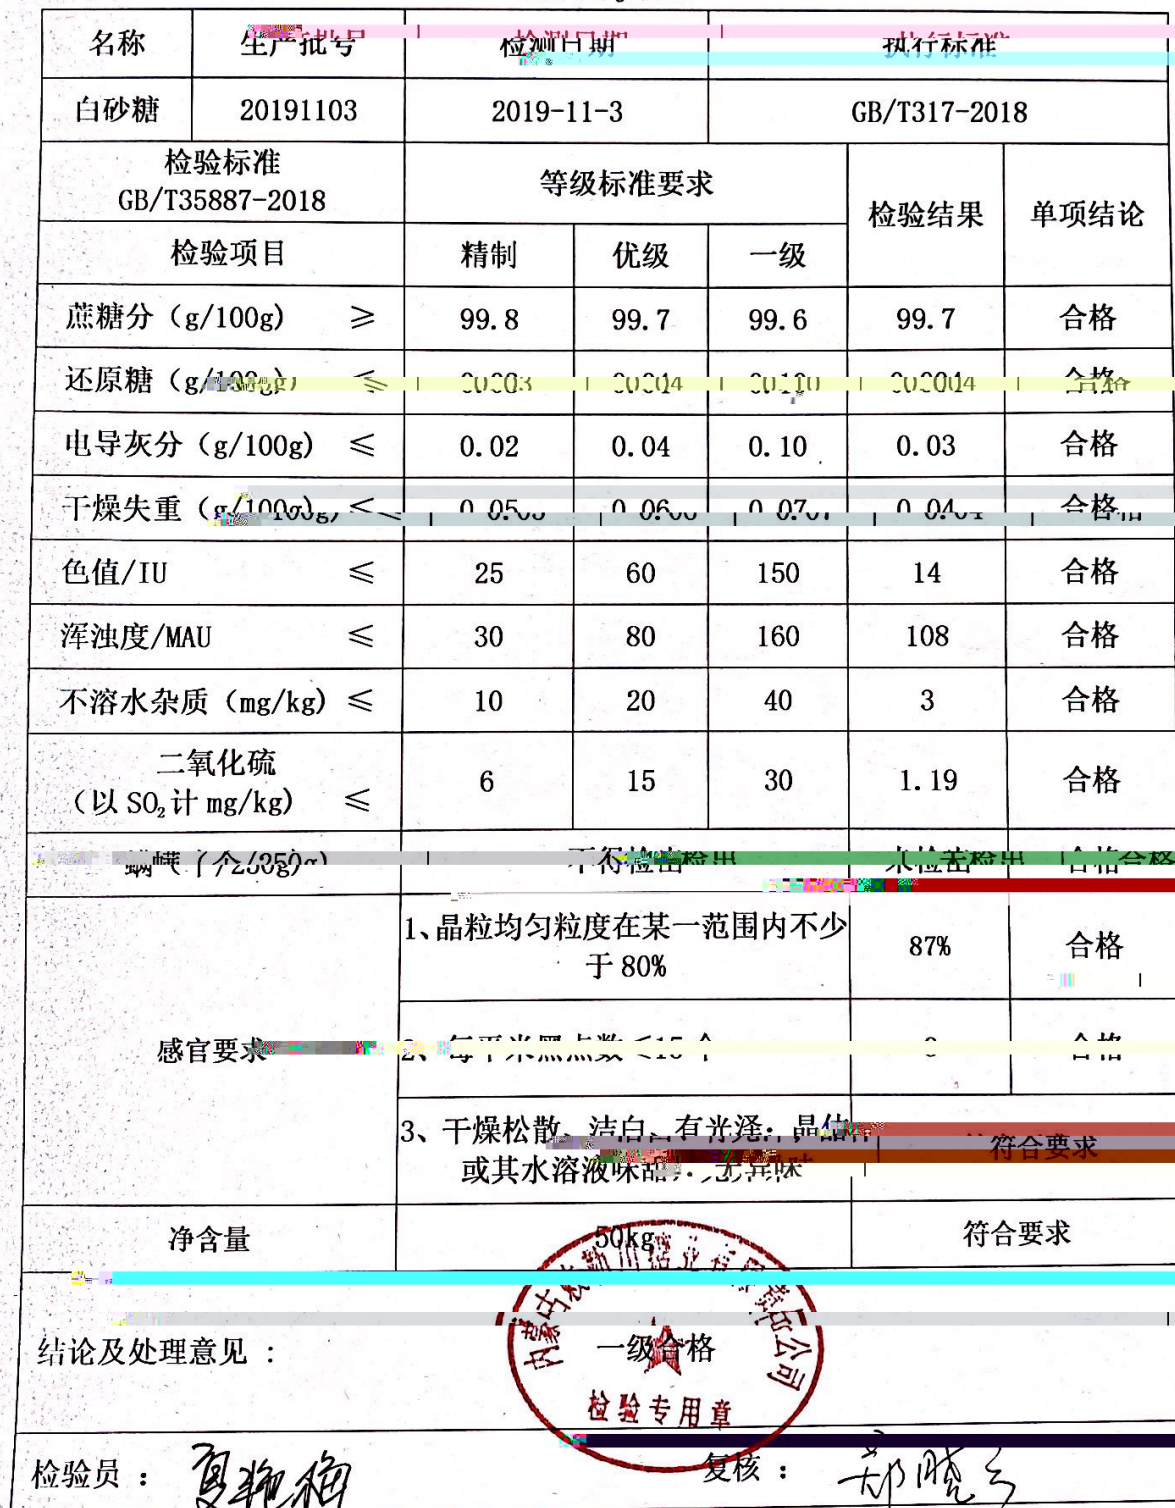 名称 生产批号 检测日期 执行标准
白砂糖 20191103 2019-11-3 GB/T317-2018
检验标准
GB/T35887-2018
等级标准要求 检验结果 单项结论
检验项目 精制 优级 一级
蔗糖分（g/100g) ≥ 99.8 99.7 99.6 99.7 合格
还原糖（g/100g) ≤ 合格
电导灰分（g/100g) ≤ 0.02 0.04 0.10 0.03 合格
干燥失重（g/100g) ≤ 0.05 0.06 0.07 0.04 合格
色值/IU ≤ 25 60 150 14 合格
浑浊度/MAU ≤ 30 80 160 108 合格
不溶水杂质（mg/kg) ≤ 10 20 40 3 合格
二氧化硫
（以 SO₂计 mg/kg) ≤ 6 15 30 1.19 合格
不得检出 未检出 合格
感官要求
1、晶粒均匀粒度在某一范围内不少
于 80% 87% 合格
2、每平米黑点数≤15 个 合格
3、干燥松散、洁白、有光泽；晶
或其水溶液味甜，无异味 符合要求
净含量 50kg 符合要求
结论及处理意见： 一级合格
检验专用章
检验员： 复核：